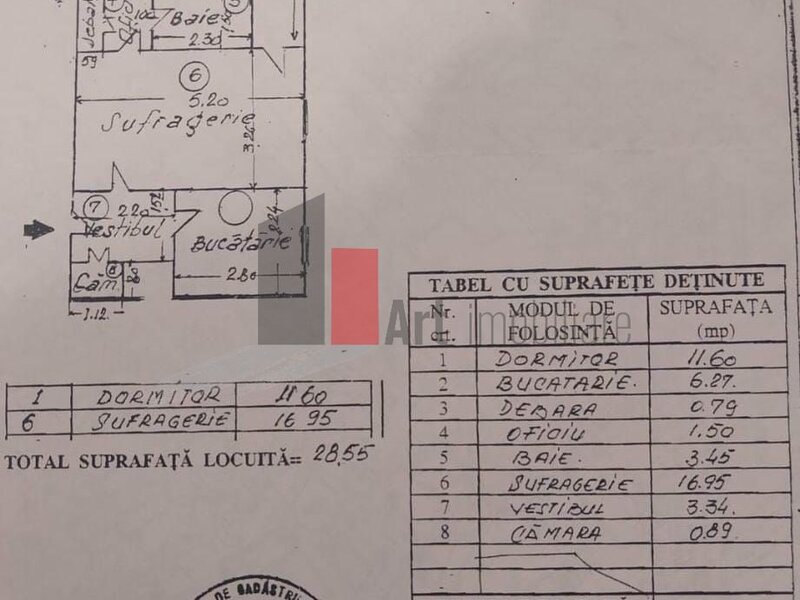 Baie
2.30
6
5.20
Sufragerie
3.26
7
2.20
1.52
Vestibul
Bucătărie
2.24
2.80
Căm.
8
1.12
Art imobiliare
TABEL CU SUPRAFEȚE DEȚINUTE
Nr. crt. MODUL DE FOLOSINȚĂ SUPRAFAȚA (mp)
1 DORMITOR 11.60
2 BUCATARIE. 6.27.
3 DEBARA 0.79
4 OFICIU 1.50
5 BAIE. 3.45
6 SUFRAGERIE 16.95
7 VESTIBUL 3.34.
8 CĂMARA 0.89.
1 DORMITOR 11 60
6 SUFRAGERIE 16 95
TOTAL SUPRAFAȚĂ LOCUITĂ= 28,55
DE CADASTRU